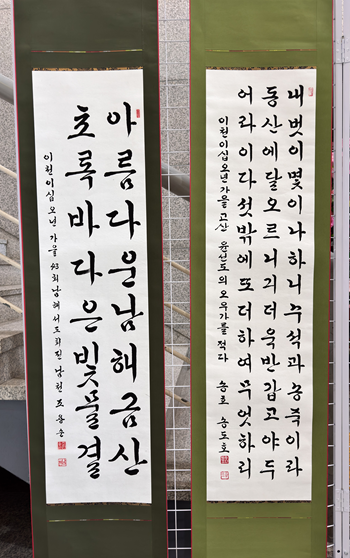 아름다운남해금산
초록바다은빛물결
이천이십오년 가을 43회남해서도회전
내벗이몇이나하니수석과송죽이라
동산에달오르니긔더욱반갑고야두
어라이다섯밖에또더하여무엇하리
이천이십오년가을 고산 윤선도의 오우가를 적다 송도호